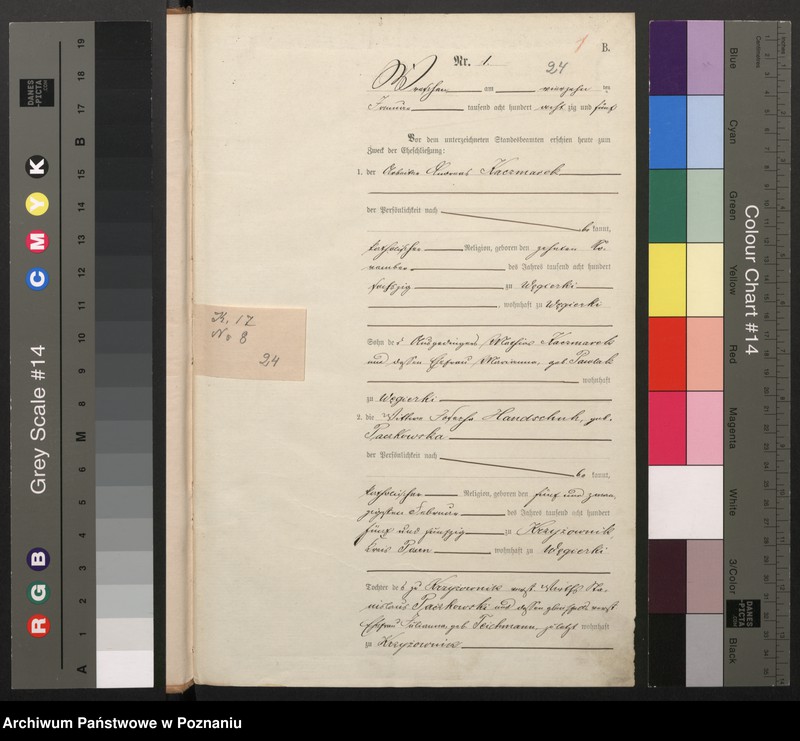 B.
Nr. 1.
24
Wreschen am vierzehn ten
Januar tausend acht hundert acht zig und fünf
Vor dem unterzeichneten Standesbeamten erschien heute zum
Zweck der Eheschließung:
1. der Arbeiter Andreas Kaczmarek
der Persönlichkeit nach
be kannt,
katholischer Religion, geboren den zehnten No-
vember des Jahres tausend acht hundert
fünfzig zu Węgierki
, wohnhaft zu Węgierki
Sohn des Ausgedingers Mathias Kaczmarek
und dessen Ehefrau Marianna, geb. Pawlak
wohnhaft
zu Węgierki
2. die Wittwe Josepha Handschuh, geb.
Paczkowska
der Persönlichkeit nach
be kannt,
katholischer Religion, geboren den fünf und zwan-
zigsten Februar des Jahres tausend acht hundert
fünf und fünfzig zu Krzyżownik
Kreis Posen wohnhaft zu Węgierki
Tochter des zu Krzyżownik verst. Wirths Sta-
nislaus Paczkowski und dessen gleichfalls verst.
Ehefrau Julianna, geb. Teichmann, zuletzt wohnhaft
zu Krzyżownik
K. 17
No 8
24
Grey Scale #14
R G B
C M Y K
A 1 2 3 4 5 6 M 8 9 10 11 12 13 14 15 B 17 18 19
DANES
PICTA
.COM
Colour Chart #14
Blue
Cyan
Green
Yellow
Red
Magenta
White
3/Color
Black
Centimetres
Inches
DANES
PICTA
.COM
Archiwum Państwowe w Poznaniu